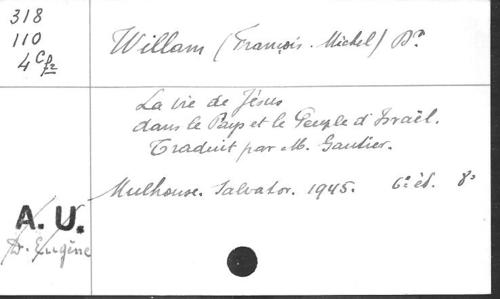 318
110
4 Cp
fr
Willam (François-Michel) Dr
La vie de Jésus
dans le Pays et le Peuple d'Israël.
Traduit par M. Gautier.
Mulhouse. Salvator. 1945. 6e éd. 8°
A. U.
Dr. Eugène